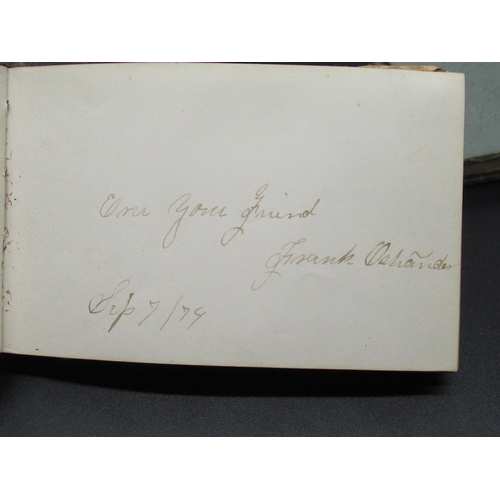 Ever Your Friend
Frank Ostrander
Sep 7/79